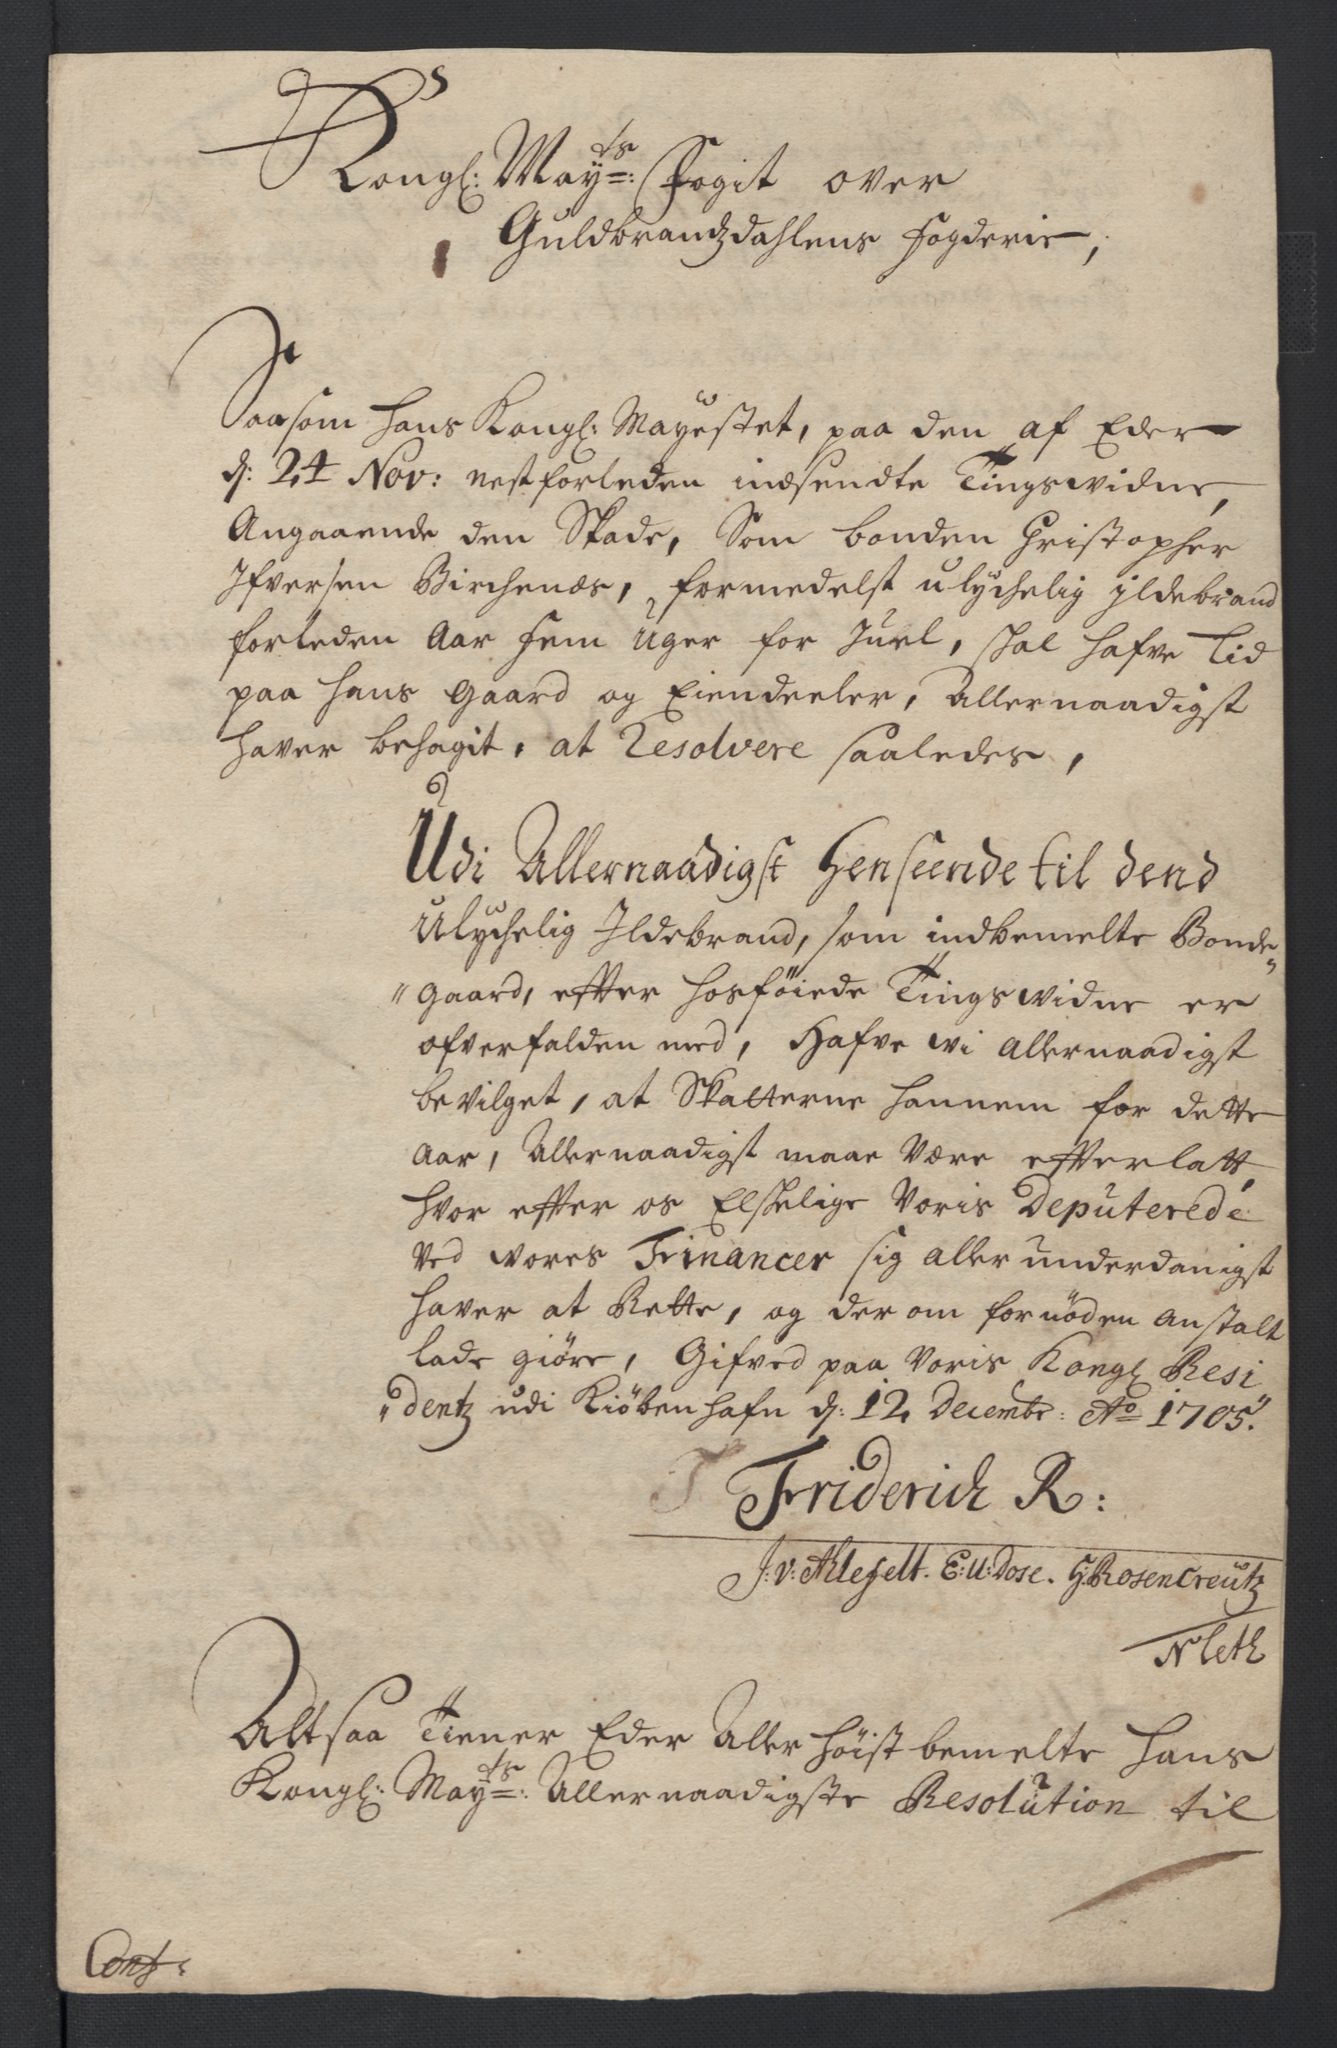 Kongl: May:ts Fogit over
Guldbrandzdahlens Fogderie,
Saasom Hans Kongl: Mayestet, paa den af Eder
d: 24 Nov: nestforleden indsendte Tingswidne,
Angaaende den Skade, Som bonden Christopher
Ifversen Birchenæs, formedelst ulychelig ildebrand
forleden Aar fem Uger for Juel, skal hafve lid
paa hans gaard og Eiendeeler, Allernaadigst
haver behagit, at Resolvere saaledes,
Udi Allernaadigst Henseende til dend
Ulychelig Ildebrand, som indbemelte Bonde-
"gaard, effter hosföiede Tingswidne er
ofverfalden med, Hafve wi allernaadigst
bevilget, at Skatterne hannem for dette
aar, Allernaadigst maae være efferlatt,
hvor effter os Elskelige Voris Deputerede
ved wores Financer sig aller underdanigst
haver at Rette, og der om fornöden anstalt
lade giöre, Gifved paa Voris Kongl Resi
"dentz udi Kiöbenhafn d: 12 Decembr: Ao 1705.
Friderich R:
J: v: Ahlefelt. E: U: Dose. G: Rosencreutz
N leth
Altsaa Tiener Eder Aller höist bemelte Hans
Kongl: May:ts Allernaadigste Resolution til
Conf: